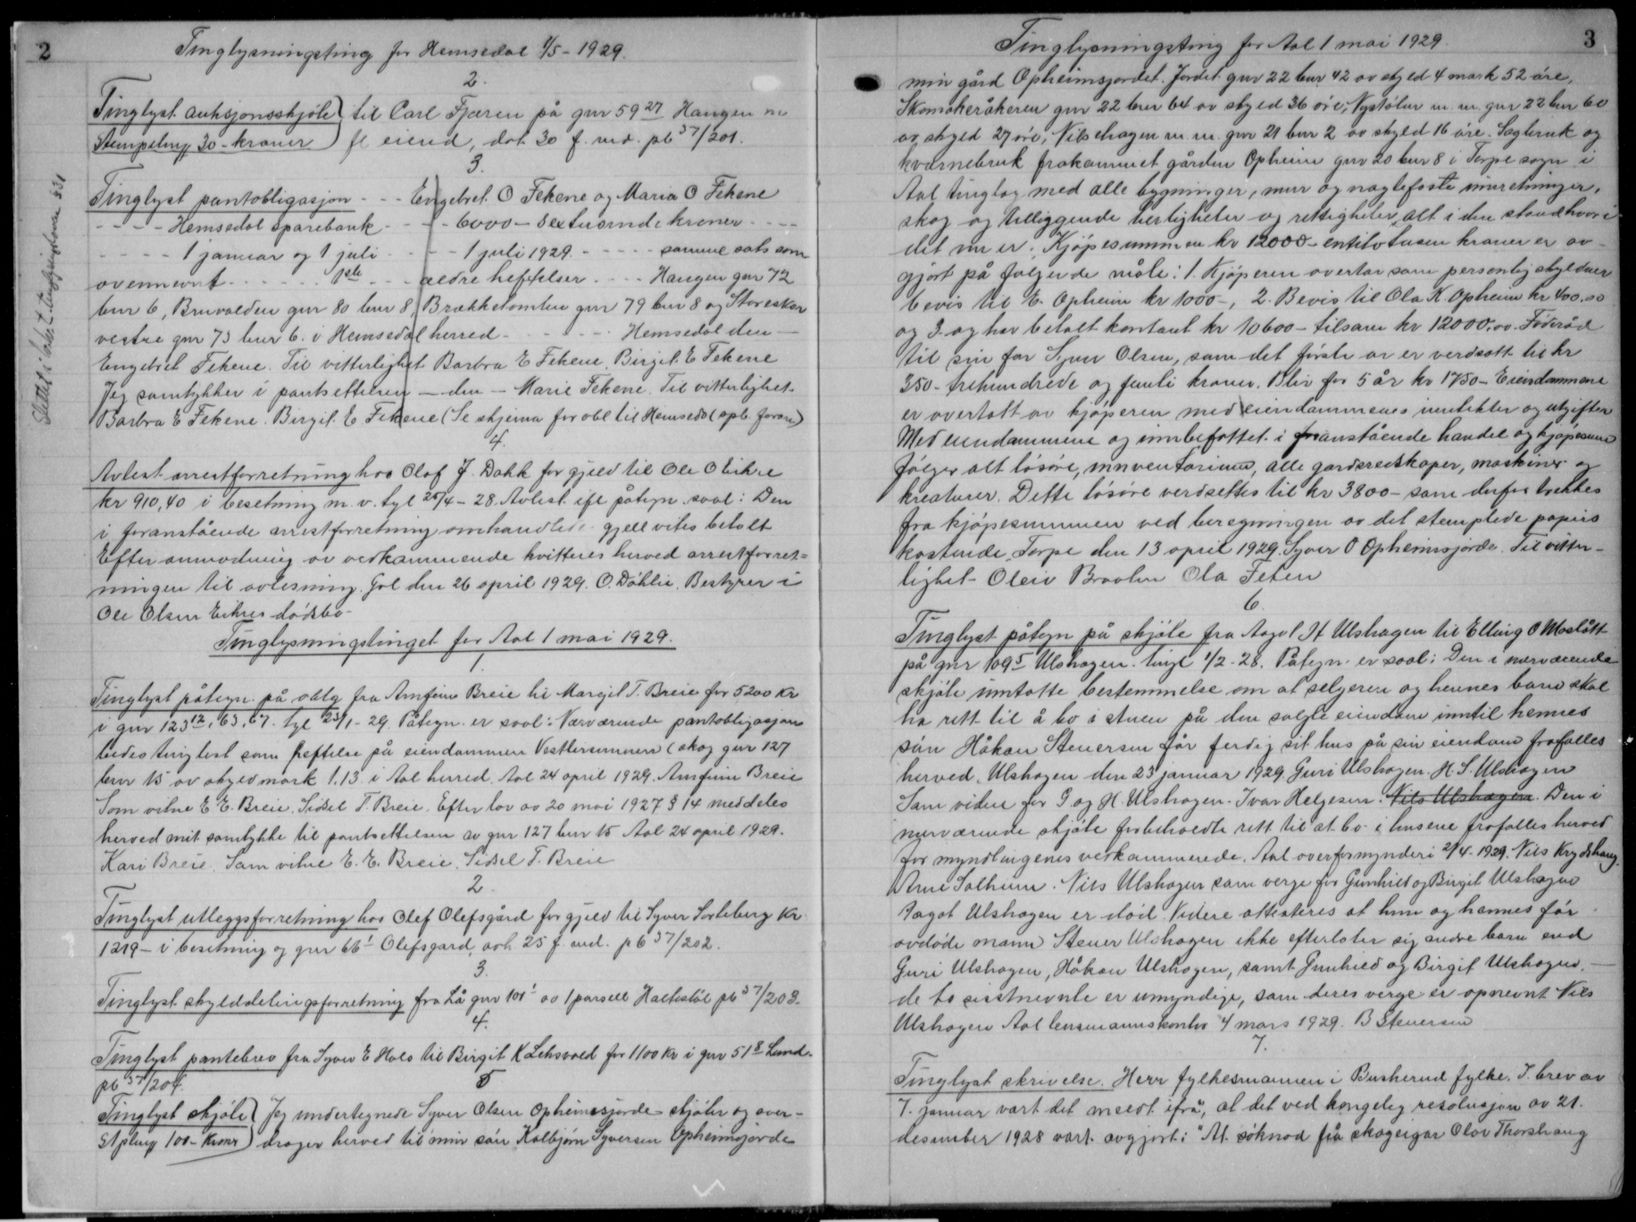 2
Tinglysningsting for Hemsedal 1/5-1929.
2.
Tinglyst auksjonsskjöte til Carl Fjæren på gnr 59 27 Haugen m
Stempeling 30 - kroner fl eiend, dat 30 f. md. pb 37/201.
3.
Tinglyst pantobligasjon - - - Engebret O Fekene og Maria O Fekene
- - - - Hemsedal Sparebank - - - 6000 - sextusende kroner - - - -
- - - - 1 januar og 1 juli - - - 1 juli 1929 - - - - samme sats som
ovennevnt - - - - - 1ste - - - ældre heftelser - - - - Haugen gnr 72
bnr 6, Bruvolden gnr 80 bnr 8, Brækketomten gnr 79 bnr 8 og Storeskar
vestre gnr 73 bnr 6. i Hemsedal herred - - - - - - Hemsedal den -
Engebret Fekene. Til vitterlighet Barbra E Fekene. Birgit E Fekene
Jeg samtykker i pantsettelsen - den - Marie Fekene. Til vitterlighet.
Barbra E Fekene. Birgit E Fekene (Se skjema for obl til Hemsedal spb. foran)
Slettet i
4.
Avlest arrestforretning hos Olof J. Dokk for gjeld til Ole O Eikre
kr 910,40 i besetning m. v. tgl 25/4 - 28. Avlest ifl påtegn. saal: Den
i foranstående arrestforretning omhandlede gjeld vites betalt
Efter anmodning av vedkommende kvitteres herved arrestforret-
ningen til avlesning. Gol den 26 april 1929. O. Döhlie. Bestyrer i
Ole Olsen Eikres dödsbo -
Tinglysningstinget for Aal 1 mai 1929.
1.
Tinglyst påtegn. på oblg fra Arnfinn Breie til Margit T. Breie for 5200 kr
i gnr 123 12, 63, 67. tgl 23/1-29. Påtegn. er saal: Nærværende pantobligasjon
bedes tinglest som heftelse på eiendommen Vestlerunnen (skog gnr 127
bnr 15 av skyld mark 1.13 i Aal herred. Aal 24 april 1929. Arnfinn Breie
Som vitne E. E. Breie. Sidsel T. Breie. Efter lov av 20 mai 1927 § 14 meddeles
herved mit samtykke til pantsettelsen av gnr 127 bnr 15 Aal 24 april 1929.
Kari Breie. Som vitne E. E. Breie. Sidsel T. Breie
2.
Tinglyst utleggsforretning hos Olef Olefsgård for gjeld til Syver Sorteberg kr
1219 - i besetning og gnr 66 1 Olefsgard, avh. 25 f. md. pb 37/202.
3.
Tinglyst skylddelingsforretning fra Lå gnr 101 1 av 1 parsell pb 37/203.
4.
Tinglyst pantebrev fra Syver E Hals til Birgit K Leksvold for 1100 kr i gnr 51 8 Lund.
pb 37/204.
5
Tinglyst skjöte Jeg undertegnede Syver Olsen Opheimsjorde skjöter og over-
Stpling 100 - kroner drager herved til min sön Kolbjörn Syversen Opheimsjorde
3
Tinglysningsting for Aal 1 mai 1929.
min gård Opheimsjordet. Jordet gnr 22 bnr 42 av skyld 4 mark 52 öre,
Skomakeråkeren gnr 22 bnr 64 av skyld 36 öre, Nystölen m. m. gnr 22 bnr 60
av skyld 27 öre, Nilsehagen m. m. gnr 21 bnr 2 av skyld 16 öre. Sagbruk og
kvernebruk frakommet gården Opheim gnr 20 bnr 8 i Torpe sogn i
Aal tinglag med alle bygninger, mur og naglefaste innretninger,
skog og tilliggende herligheter og rettigheter, alt i den stand hvori
det nu er. Kjöpesummen kr 12000 - entitotusen kroner er av-
gjort på fölgende måte: 1. Kjöperen overtar som personlig skyldner
bevis til E. Opheim kr 1000 -, 2. Bevis til Ola K. Opheim kr 400,00
og 3. og har betalt kontant kr 10600 - tilsam kr 12000,00. Föderåd
til sin far Syver Olsen, som det förste år er verdsatt til kr
350 - trehundrede og femti kroner. Blir for 5 år kr 1750 - Eiendommene
er overtatt av kjöperen med eiendommenes inntekter og utgifter
Med eiendommene og innbefattet i foranstående handel og kjöpesum
fölger alt lösöre, innventarium, alle gardsredskaper, maskiner og
kreaturer. Dette lösöre verdsettes til kr 3800 - som derfor trekkes
fra kjöpesummen ved beregningen av det stemplede papirs
kostende. Torpe den 13 april 1929. Syver O Opheimsjorde. Til vitter-
lighet - Oleiv Braaten Ola Feten
6.
Tinglyst påtegn på skjöte fra Aagot H Ulshagen til Elling O Moslått
på gnr 109 5 Ulshagen. tingl 1/2-28. Påtegn. er saal: Den i nærværende
skjöte inntatte bestemmelse om at selgeren og hennes barn skal
ha rett til å bo i stuen på den solgte eiendom inntil hennes
sön Håkon Steinersen får ferdig sit hus på sin eiendom frafalles
herved. Ulshagen den 23 januar 1929. Guri Ulshagen. H. S. Ulshagen
Som vidne for G og H. Ulshagen. Ivar Helgesen. Nils Ulshagen. Den i
nærværende skjöte forbeholdte rett til at bo i husene frafalles herved
for myndlingenes vedkommende. Aal overformynderi 2/4-1929. Nils Krydshaug.
Arne Solheim. Nils Ulshagen som verge for Gunhild og Birgit Ulshagen
Aagot Ulshagen er död. Videre attesteres at hun og hennes för
avdöde mann Steiner Ulshagen ikke efterlater sig andre barn end
Guri Ulshagen, Håkon Ulshagen, samt Gunhild og Birgit Ulshagen. -
de to sisstnevnte er umyndige, som deres verge er opnevnt Nils
Ulshagen Aal lensmannskontor 4 mars 1929. B Steinersen
7.
Tinglyst skrivelse. Herr fylkesmannen i Buskerud fylke. I brev av
7. januar vart det meldt ifrå, at det ved kongelig resolusjon av 21.
desember 1928 vart avgjort: "At söknad frå skogeigar Olav Thorshaug